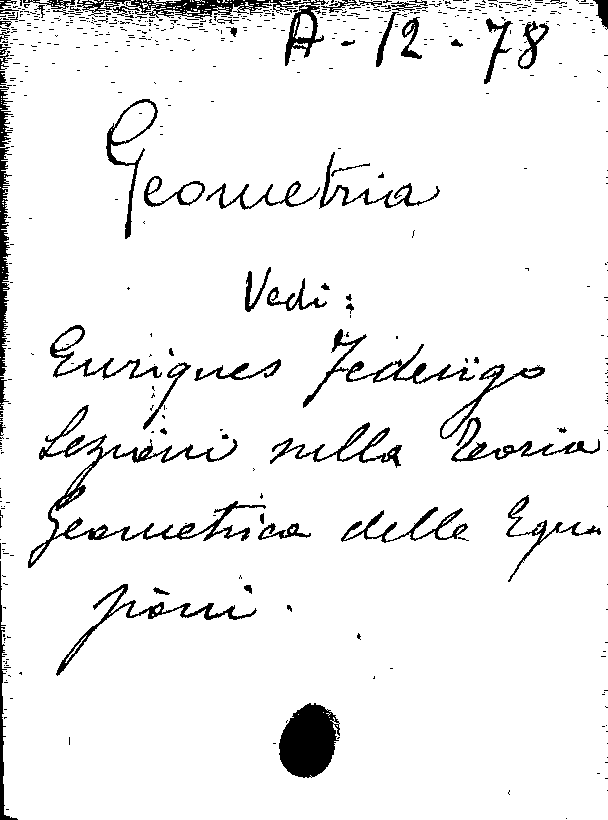 A-12-78
Geometria
Vedi:
Enriques Federigo
Lezioni sulla Teoria
Geometrica delle Equa
zioni.